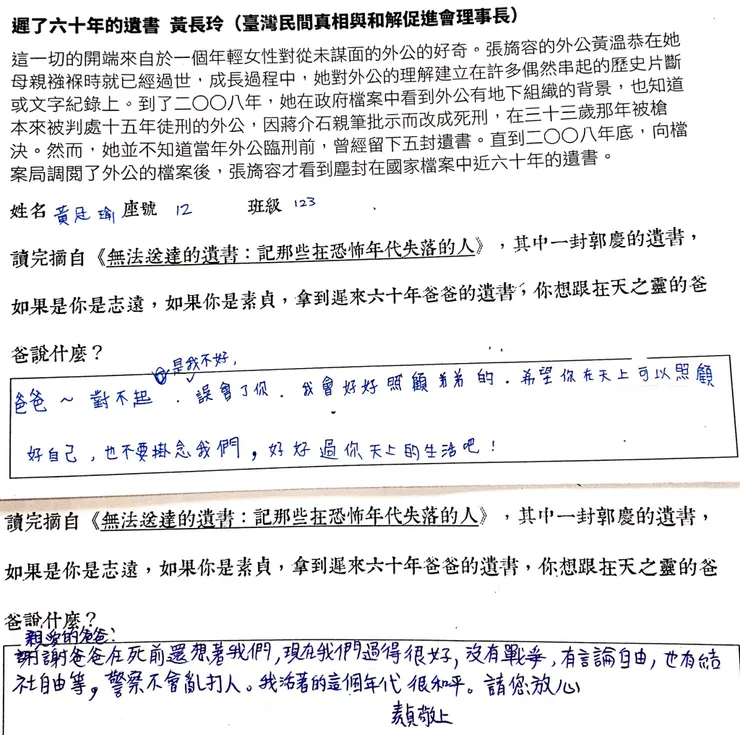 遲了六十年的遺書 黃長玲（臺灣民間真相與和解促進會理事長）
這一切的開端來自於一個年輕女性對從未謀面的外公的好奇。張旖容的外公黃溫恭在她
母親襁褓時就已經過世，成長過程中，她對外公的理解建立在許多偶然串起的歷史片斷
或文字紀錄上。到了二〇〇八年，她在政府檔案中看到外公有地下組織的背景，也知道
本來被判處十五年徒刑的外公，因蔣介石親筆批示而改成死刑，在三十三歲那年被槍
決。然而，她並不知道當年外公臨刑前，曾經留下五封遺書。直到二〇〇八年底，向檔
案局調閲了外公的檔案後，張旖容才看到塵封在國家檔案中近六十年的遺書。
姓名 黃廷瑜 座號 12 班級 123
讀完摘自《無法送達的遺書：記那些在恐怖年代失落的人》，其中一封郭慶的遺書，
如果是你是志遠，如果你是素貞，拿到遲來六十年爸爸的遺書，你想跟在天之靈的爸
爸說什麼？
是我不好，
爸爸～對不起．誤會了你．我會好好照顧弟弟的．希望你在天上可以照顧
好自己，也不要掛念我們，好好過你天上的生活吧！
讀完摘自《無法送達的遺書：記那些在恐怖年代失落的人》，其中一封郭慶的遺書，
如果是你是志遠，如果你是素貞，拿到遲來六十年爸爸的遺書，你想跟在天之靈的爸
爸說什麼？
親愛的爸爸：
謝謝爸爸在死前還想著我們，現在我們過得很好，沒有戰爭，有言論自由，也有結
社自由等，警察不會亂打人。我活著的這個年代很和平。請您放心
素貞敬上